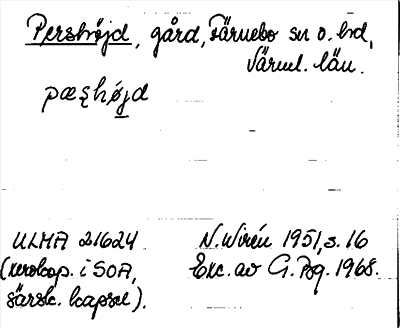 Pershöjd, gård, Färnebo sn o. hd,
Värml. län.
pæʂhøjd
ULMA 21624 N. Wirén 1951, s. 16
(xerokop. i SOA, Exc. av G. Psg. 1968.
särsk. kapsel).